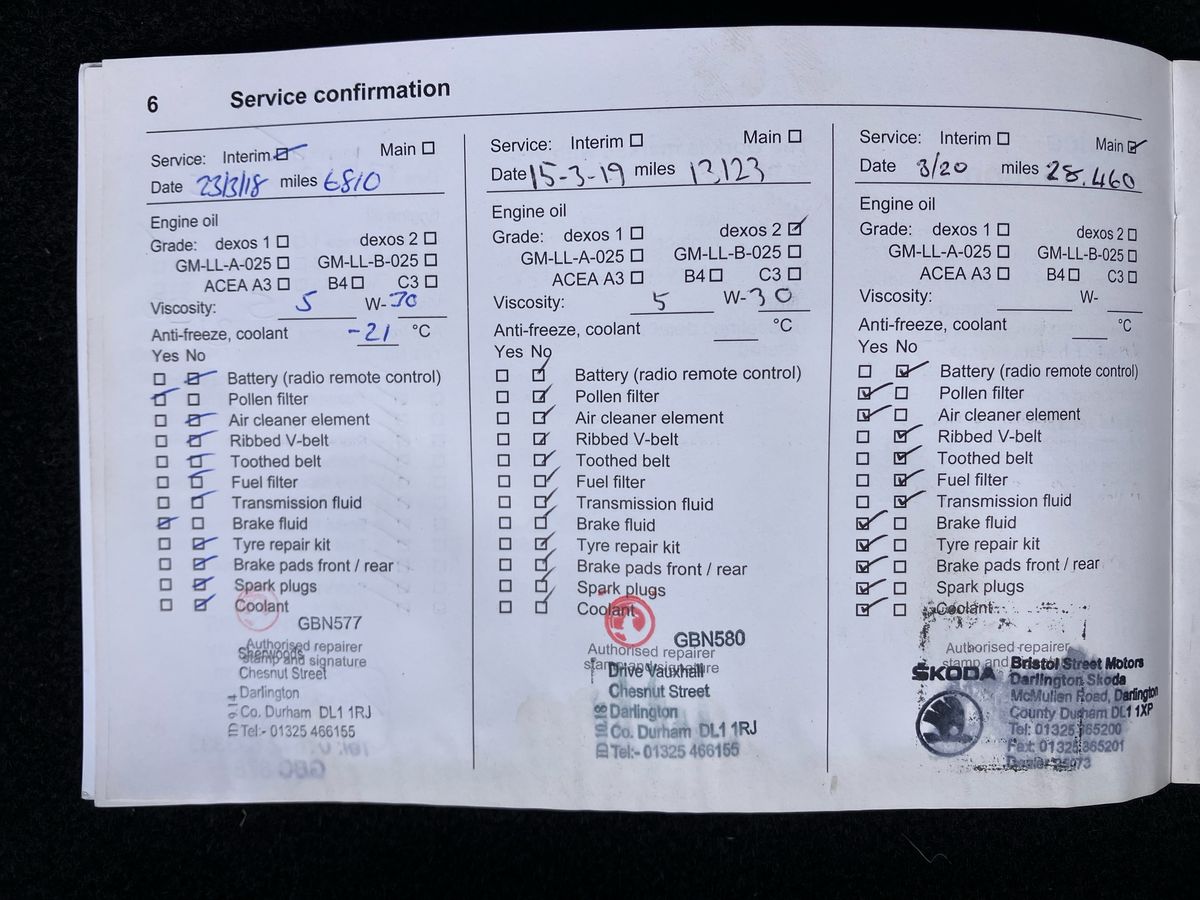 6 Service confirmation
Service: Interim ☑ Main ☐
Date 23/3/18 miles 6810
Engine oil
Grade: dexos 1 ☐ dexos 2 ☐
GM-LL-A-025 ☐ GM-LL-B-025 ☐
ACEA A3 ☐ B4 ☐ C3 ☐
Viscosity: 5 W-30
Anti-freeze, coolant -21 °C
Yes No
☐ ☑ Battery (radio remote control)
☑ ☐ Pollen filter
☐ ☑ Air cleaner element
☐ ☑ Ribbed V-belt
☐ ☑ Toothed belt
☐ ☑ Fuel filter
☐ ☑ Transmission fluid
☑ ☐ Brake fluid
☐ ☑ Tyre repair kit
☐ ☑ Brake pads front / rear
☐ ☑ Spark plugs
☐ ☑ Coolant
GBN577
Authorised repairer
stamp and signature
Sherwoods
Chesnut Street
Darlington
Co. Durham DL1 1RJ
Tel:- 01325 466155
Service: Interim ☐ Main ☐
Date 15-3-19 miles 13123
Engine oil
Grade: dexos 1 ☐ dexos 2 ☑
GM-LL-A-025 ☐ GM-LL-B-025 ☐
ACEA A3 ☐ B4 ☐ C3 ☐
Viscosity: 5 W-30
Anti-freeze, coolant °C
Yes No
☐ ☑ Battery (radio remote control)
☐ ☑ Pollen filter
☐ ☑ Air cleaner element
☐ ☑ Ribbed V-belt
☐ ☑ Toothed belt
☐ ☑ Fuel filter
☐ ☑ Transmission fluid
☐ ☑ Brake fluid
☐ ☑ Tyre repair kit
☐ ☑ Brake pads front / rear
☐ ☑ Spark plugs
☐ ☑ Coolant
GBN580
Authorised repairer
stamp and signature
Drive Vauxhall
Chesnut Street
Darlington
Co. Durham DL1 1RJ
Tel:- 01325 466155
Service: Interim ☐ Main ☑
Date 3/20 miles 28.460
Engine oil
Grade: dexos 1 ☐ dexos 2 ☐
GM-LL-A-025 ☐ GM-LL-B-025 ☐
ACEA A3 ☐ B4 ☐ C3 ☐
Viscosity: W-
Anti-freeze, coolant °C
Yes No
☐ ☑ Battery (radio remote control)
☑ ☐ Pollen filter
☑ ☐ Air cleaner element
☐ ☑ Ribbed V-belt
☐ ☑ Toothed belt
☐ ☑ Fuel filter
☐ ☑ Transmission fluid
☑ ☐ Brake fluid
☑ ☐ Tyre repair kit
☑ ☐ Brake pads front / rear
☑ ☐ Spark plugs
☑ ☐ Coolant
Authorised repairer
stamp and
ŠKODA
Bristol Street Motors
Darlington Skoda
McMullen Road, Darlington
County Durham DL1 1XP
Tel: 01325 365200
Fax: 01325 365201
Dealer